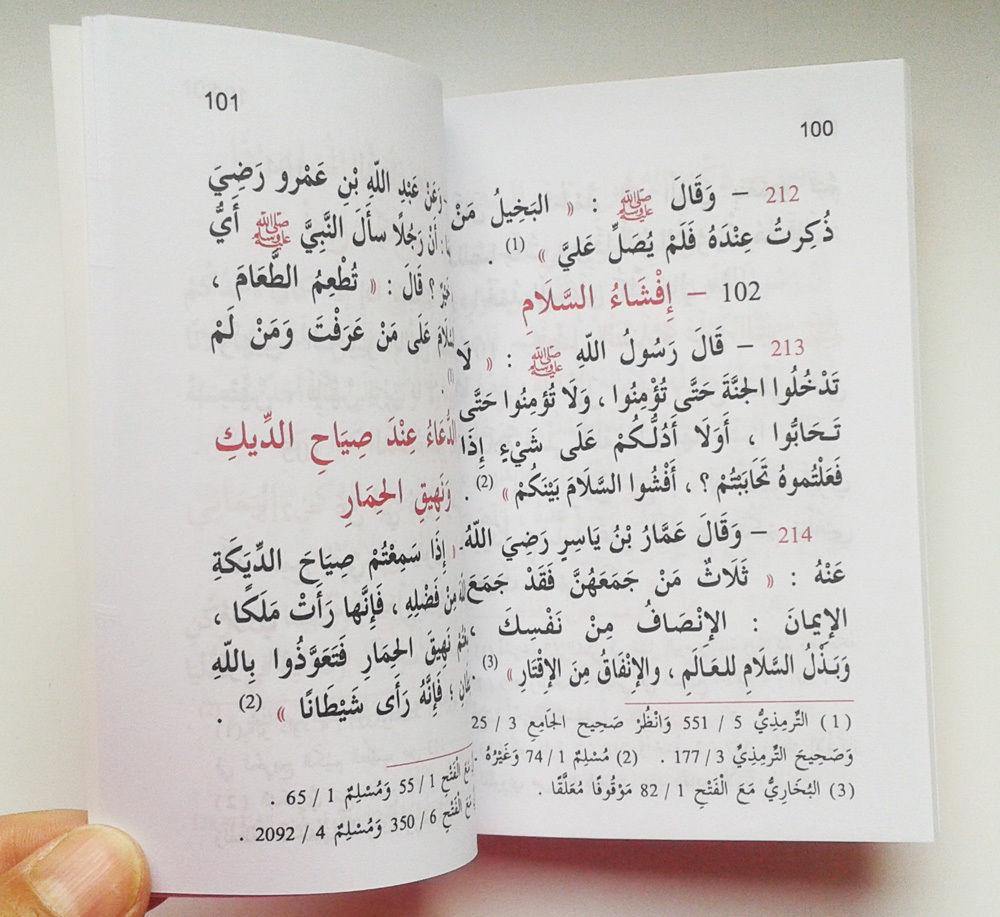 100
212 – وَقَالَ ﷺ : « البَخِيلُ مَنْ
ذُكِرتُ عِنْدَهُ فَلَمْ يُصَلِّ عَليَّ » (1) .
102 – إِفْشَاءُ السَّلَامِ
213 – قَالَ رَسُولُ اللّهِ ﷺ : « لَا
تَدْخُلُوا الجنَّةَ حَتَّى تُؤْمِنُوا ، وَلَا تُؤمِنُوا حَتَّى
تَحَابُّوا ، أَوَلَا أَدُلُّكُمْ عَلَى شَيْءٍ إِذَا
فَعَلْتُموهُ تَحَابَبْتُمْ ؟ ، أَفْشُوا السَّلَامَ بَيْنَكُمْ » (2) .
214 – وَقَالَ عَمَّارُ بْنُ يَاسِرٍ رَضِيَ اللّهُ
عَنْهُ : « ثَلَاثٌ مَنْ جَمَعَهُنَّ فَقَدْ جَمَعَ
الإِيمانَ : الإِنْصَافُ مِنْ نَفْسِكَ ،
وَبَذْلُ السَّلَامِ للعَالَمِ ، والإِنْفَاقُ مِنَ الإِقْتَارِ » (3)
(1) التِّرمِذِيُّ 5 / 551 وَانْظُرْ صَحِيح الجَامِعِ 3 / 25
وَصَحِيحَ التِّرمِذِيِّ 3 / 177 . (2) مُسْلِمٌ 1 / 74 وَغَيْرُهُ .
(3) البُخَارِيُّ مَعَ الْفَتْحِ 1 / 82 مَوْقُوفًا مُعَلَّقًا .
101
وَعَنْ عَبْدِ اللّهِ بْنِ عَمْرو رَضِيَ
: أَنَّ رَجُلًا سأَلَ النَّبِيَّ ﷺ أَيُّ
؟ قَالَ : « تُطْعِمُ الطَّعَامَ ،
السَّلَامَ عَلَى مَنْ عَرَفْتَ وَمَنْ لَمْ
(1) .
الدُّعَاءُ عِنْدَ صِيَاحِ الدِّيكِ
وَنَهِيقِ الحِمَارِ
« إِذَا سَمِعْتُمْ صِيَاحَ الدِّيَكَةِ
مِنْ فَضْلِهِ ، فَإِنَّها رَأَتْ مَلَكًا ،
نَهِيقَ الحِمَارِ فَتَعَوَّذُوا بِاللّهِ
؛ فَإِنَّهُ رَأَى شَيْطَانًا » (2) .
مَعَ الْفَتْحِ 1 / 55 وَمُسْلِمٌ 1 / 65 .
مَعَ الْفَتْحِ 6 / 350 وَمُسْلِمٌ 4 / 2092 .